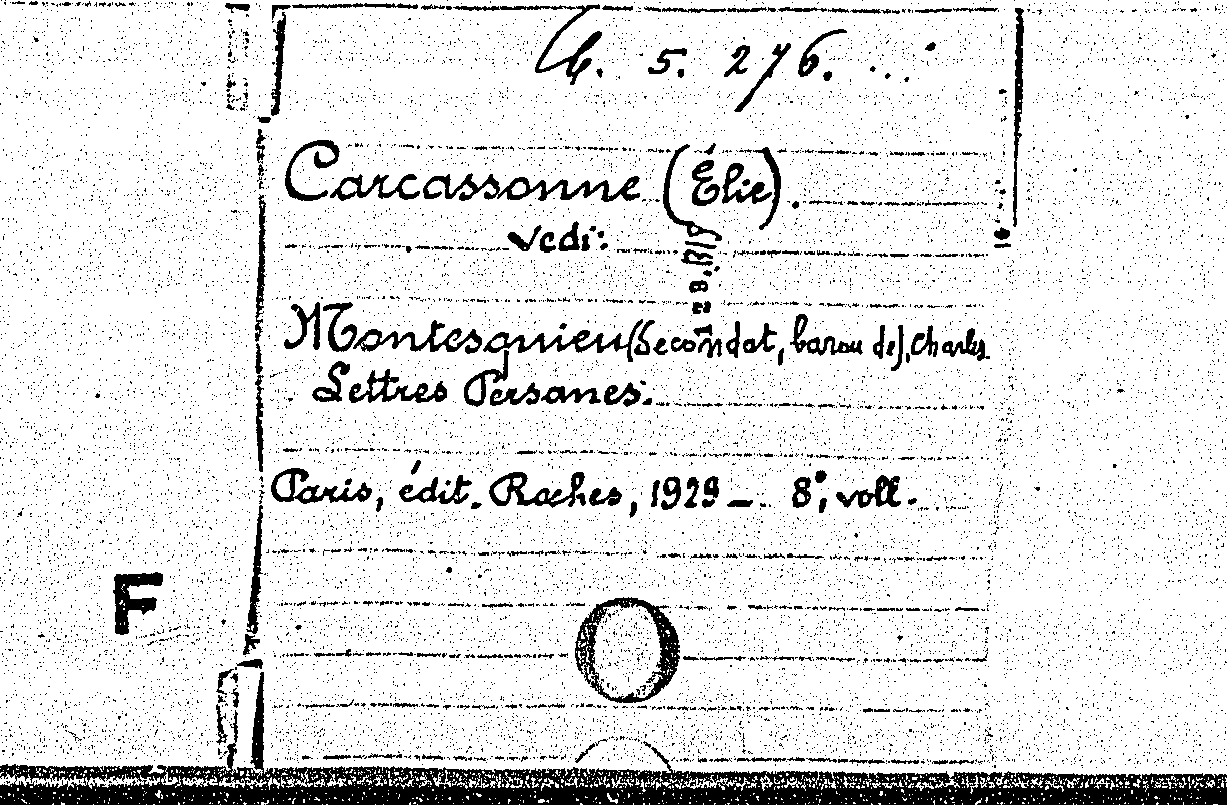 5. 276. ...
Carcassonne (Élie).
vedi:
Montesquieu (Secondat, baron de), Charles
Lettres Persanes.
Paris, édit. Roches, 1929 - 8°, voll.
F